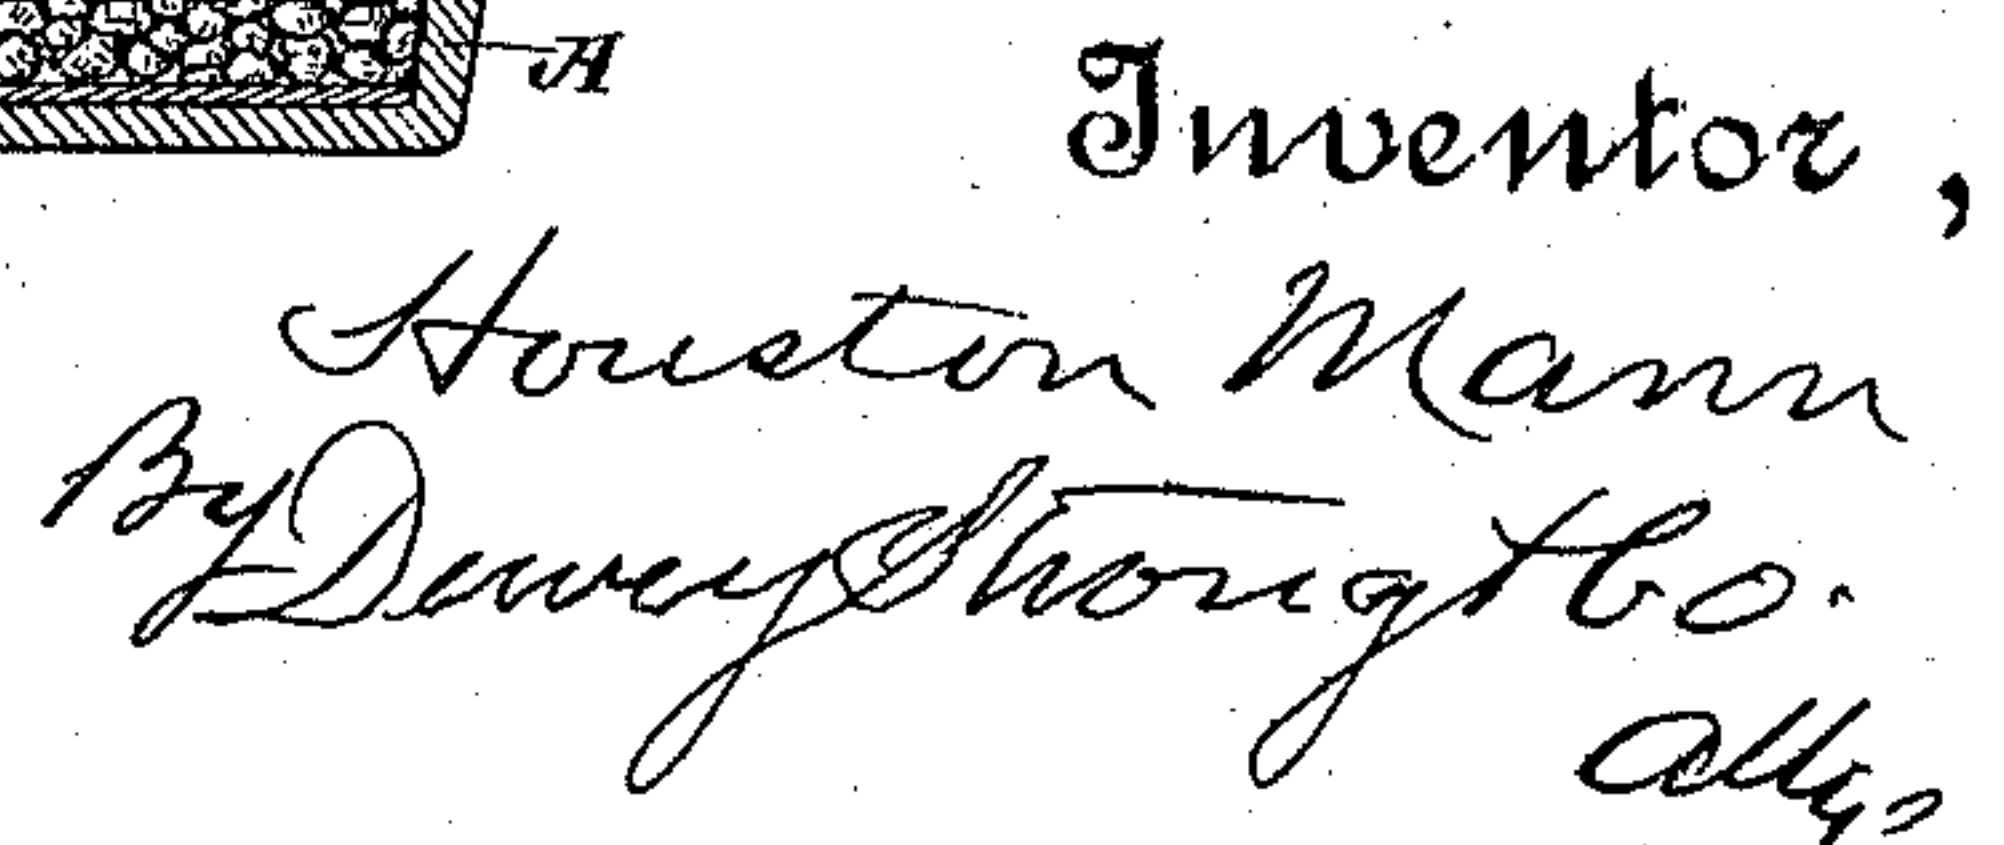 A
Inventor,
Houston Mann
By Dewey Strong & Co.
Attys